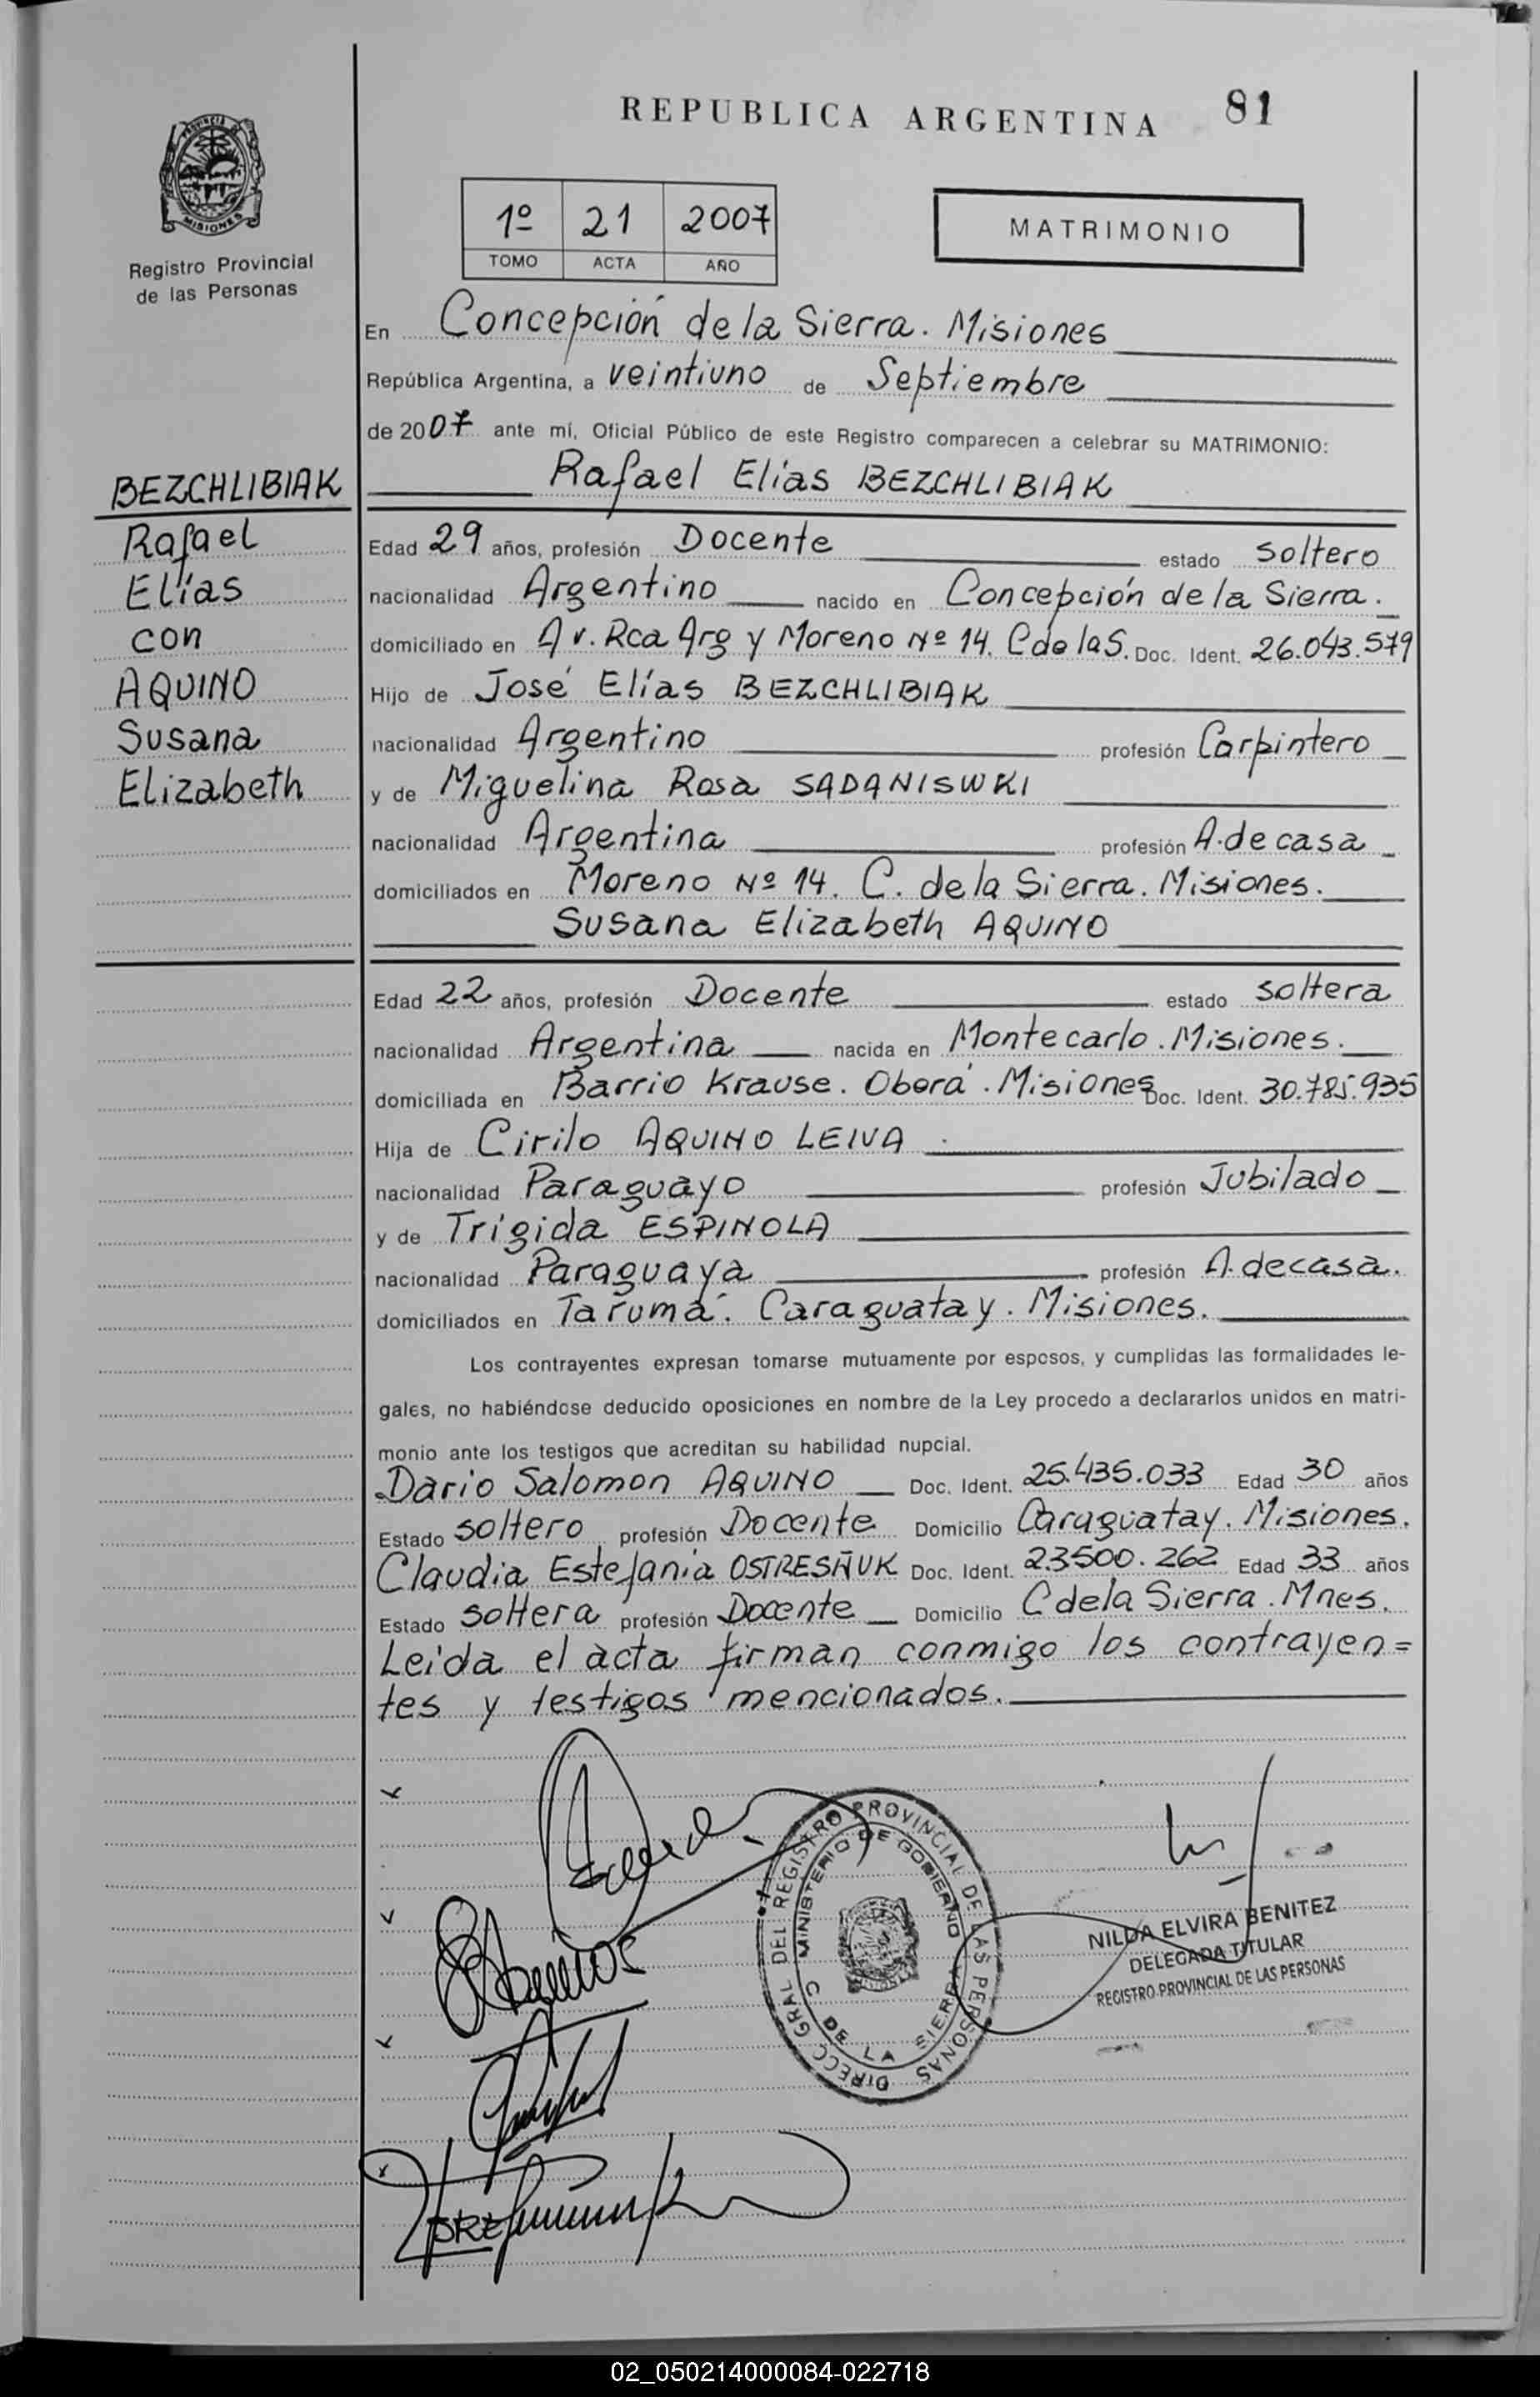 REPUBLICA ARGENTINA 81
PROVINCIA DE MISIONES
Registro Provincial
de las Personas
1º 21 2007
TOMO ACTA AÑO
MATRIMONIO
En Concepción de la Sierra. Misiones
República Argentina, a veintiuno de Septiembre
de 2007 ante mí, Oficial Público de este Registro comparecen a celebrar su MATRIMONIO:
BEZCHLIBIAK
Rafael
Elías
con
AQUINO
Susana
Elizabeth
Rafael Elías BEZCHLIBIAK
Edad 29 años, profesión Docente estado soltero
nacionalidad Argentino nacido en Concepción de la Sierra.
domiciliado en Av. Rca Arg y Moreno Nº 14. C de la S. Doc. Ident. 26.043.579
Hijo de José Elías BEZCHLIBIAK
nacionalidad Argentino profesión Carpintero
y de Miguelina Rosa SADANISWKI
nacionalidad Argentina profesión A. de casa
domiciliados en Moreno Nº 14. C. de la Sierra. Misiones.
Susana Elizabeth AQUINO
Edad 22 años, profesión Docente estado soltera
nacionalidad Argentina nacida en Montecarlo. Misiones.
domiciliada en Barrio Krause. Oberá. Misiones Doc. Ident. 30.785.935
Hija de Cirilo AQUINO LEIVA.
nacionalidad Paraguayo profesión Jubilado
y de Trigida ESPINOLA
nacionalidad Paraguaya profesión A. de casa.
domiciliados en Tarumá. Caraguatay. Misiones.
Los contrayentes expresan tomarse mutuamente por esposos, y cumplidas las formalidades le-
gales, no habiéndose deducido oposiciones en nombre de la Ley procedo a declararlos unidos en matri-
monio ante los testigos que acreditan su habilidad nupcial.
Dario Salomon AQUINO Doc. Ident. 25.435.033 Edad 30 años
Estado soltero profesión Docente Domicilio Caraguatay. Misiones.
Claudia Estefanía OSTRESÑUK Doc. Ident. 23500.262 Edad 33 años
Estado soltera profesión Docente Domicilio C de la Sierra. Mnes.
Leida el acta firman conmigo los contrayen=
tes y testigos mencionados.
DIRECC GRAL DEL REGISTRO PROVINCIAL DE LAS PERSONAS
MINISTERIO DE GOBIERNO
C DE LA SIERRA
NILDA ELVIRA BENITEZ
DELEGADA TITULAR
REGISTRO PROVINCIAL DE LAS PERSONAS
02_050214000084-022718